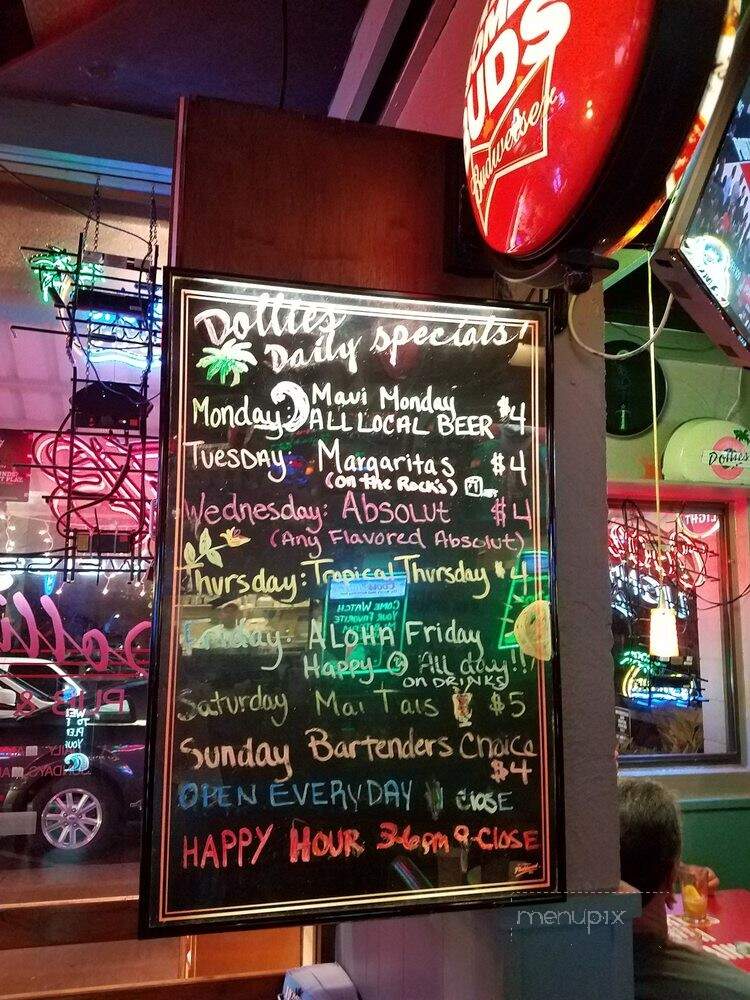 BUDS
Budweiser
Dotties
Daily specials!
Monday: Maui Monday
ALL LOCAL BEER $4
TUESDAY: Margaritas $4
(on the Rock's)
Wednesday: Absolut $4
(Any Flavored Absolut)
Thursday: Tropical Thursday $4
Friday: ALOHA Friday
Happy @ All day!!!
ON DRINKS
Saturday Mai Tais $5
Sunday Bartenders Choice
$4
OPEN EVERYDAY CLOSE
HAPPY HOUR 3-6pm 9-CLOSE
COME WATCH
YOUR FAVORITE
Dotties
LIGHT
PUB &
menupix